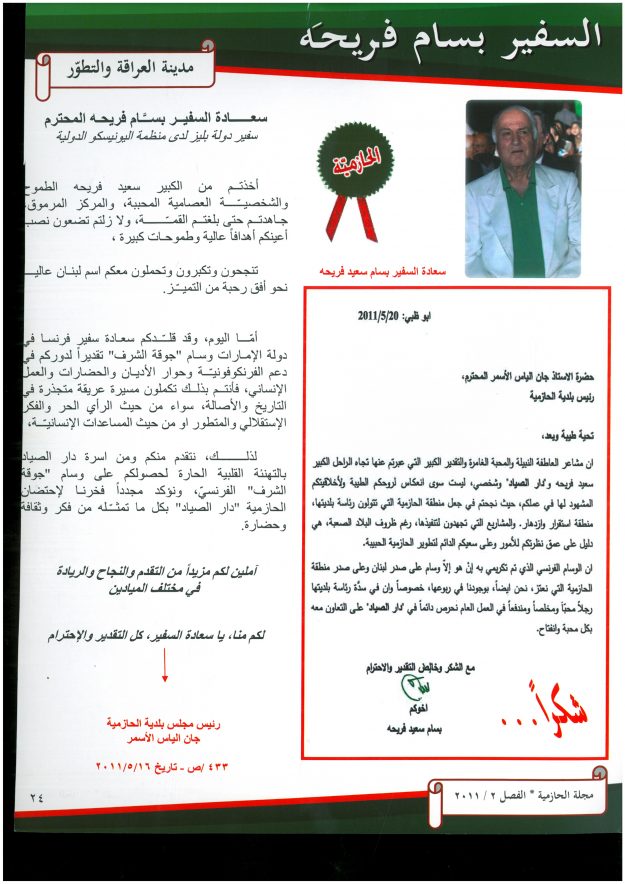 السفير بسام فريحَه
مدينة العراقة والتطوّر
سعـــادة السفيـر بسـّام فريحـه المحترم
سفير دولة بليز لدى منظمة اليونيسكو الدولية
أخذتـم من الكبير سعيد فريحه الطموح
والشخصيّـة العصامية المحببة، والمركز المرموق،
جاهدتـم حتى بلغتـم القمـــة، ولا زلتم تضعون نصب
أعينكم أهدافاً عالية وطموحات كبيرة ،
تنجحون وتكبرون وتحملون معكم اسم لبنـان عاليـا
نحو أفق رحبة من التميـّـز.
أمّـا اليوم، وقد قلـّـدكم سعادة سفير فرنسا في
دولة الإمارات وسام "جوقة الشرف" تقديراً لدوركم في
دعم الفرنكوفونيّـة وحوار الأديـان والحضارات والعمل
الإنساني، فأنتـم بذلـك تكملون مسيرة عريقة متجذرة في
التاريخ والأصالة، سواء من حيث الرأي الحر والفكر
الإستقلالي والمتطور او من حيث المساعدات الإنسانيّـة،
لذلـــــك، نتقدم منكم ومن اسرة دار الصياد
بالتهنئة القلبية الحارة لحصولكم على وسام "جوقة
الشرف" الفرنسيّ، ونؤكد مجدداً فخرنـا لإحتضان
الحازمية "دار الصياد" بكل ما تمثـّـله من فكر وثقافة
وحضارة.
آملين لكم مزيـداً من التقدم والنجاح والريادة
في مختلف الميادين
لكم منا، يا سعادة السفير، كل التقدير والإحترام
رئيس مجلس بلدية الحازمية
جان الياس الأسمر
٤٣٣ /ص - تاريخ ٢٠١١/٥/١٦
الحازميّة
سعادة السفير بسام سعيد فريحه
ابو ظبي: 2011/5/20
حضرة الاستاذ جان الياس الأسمر المحترم،
رئيس بلدية الحازمية
تحية طيبة وبعد،
ان مشاعر العاطفة النبيلة والمحبة الغامرة والتقدير الكبير التي عبرتم عنها تجاه الراحل الكبير
سعيد فريحه و"دار الصياد" وشخصي، ليست سوى انعكاس لروحكم الطيبة ولأخلاقيتكم
المشهود لها في عملكم، حيث نجحتم في جعل منطقة الحازمية التي تتولون رئاسة بلديتها،
منطقة استقرار وازدهار. والمشاريع التي تجهدون لتنفيذها، رغم ظروف البلاد الصعبة، هي
دليل على عمق نظرتكم للأمور وعلى سعيكم الدائم لتطوير الحازمية الحبيبة.
ان الوسام الفرنسي الذي تم تكريمي به إنْ هو إلاّ وسام على صدر لبنان وعلى صدر منطقة
الحازمية التي نعتز، نحن ايضاً، بوجودنا في ربوعها، خصوصاً وان في سدَّة رئاسة بلديتها
رجلاً محبّاً ومخلصاً ومندفعاً في العمل العام نحرص دائماً في "دار الصياد" على التعاون معه
بكل محبة وانفتاح.
مع الشكر وخالص التقدير والاحترام
اخوكم
بسام سعيد فريحه
شكراً...
مجلة الحازمية * الفصل ٢ / ٢٠١١
٢٤